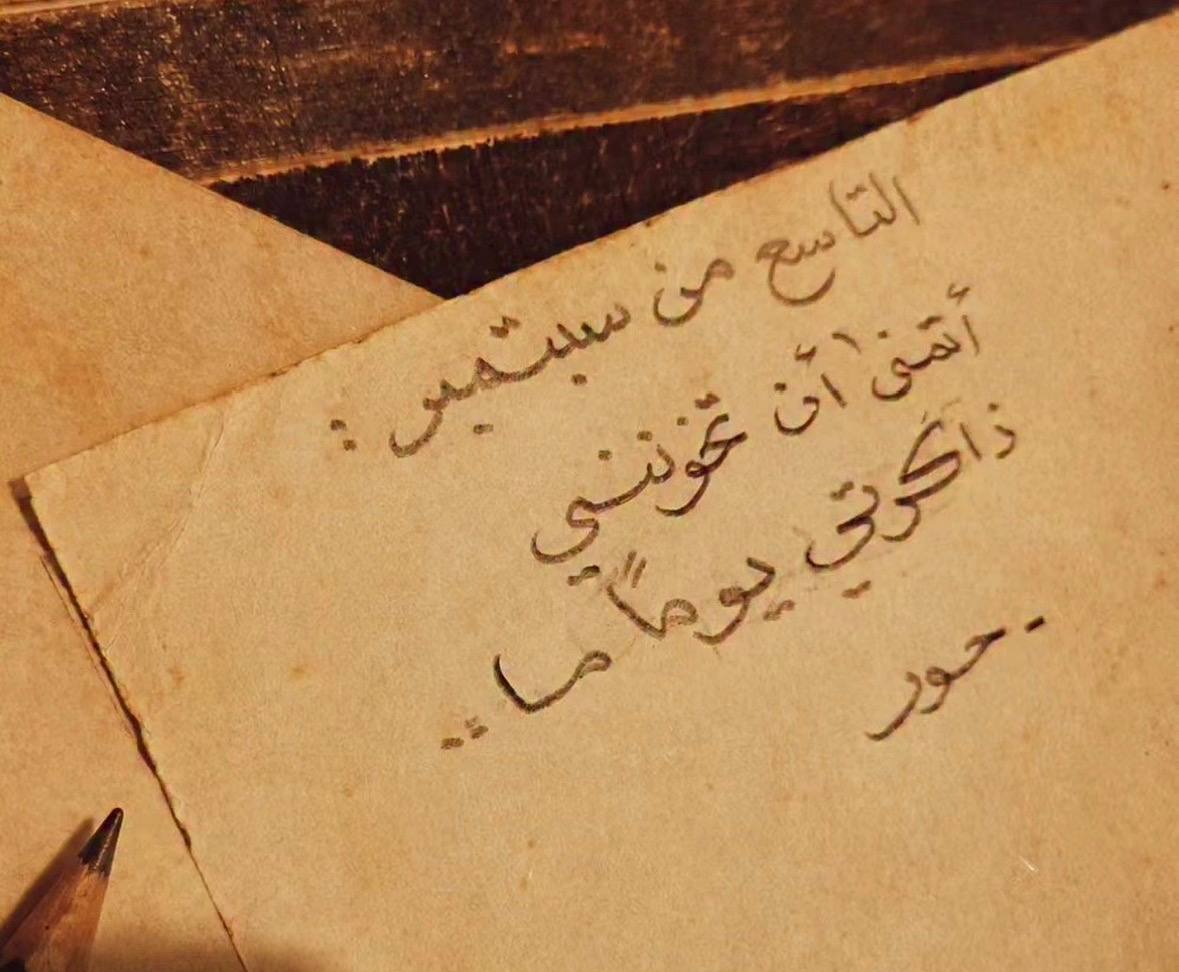 التاسع من سبتمبر :
أتمنى أن تخونني
ذاكرتي يوماً ما ..
- حور